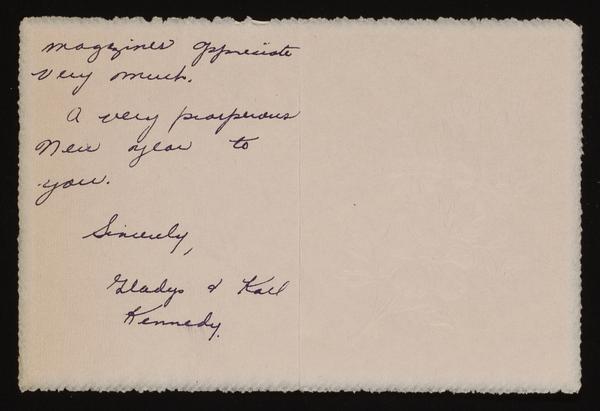 magazines appreciate
very much.
A very prosperous
New year to
you.
Sincerely,
Gladys & Karl
Kennedy.